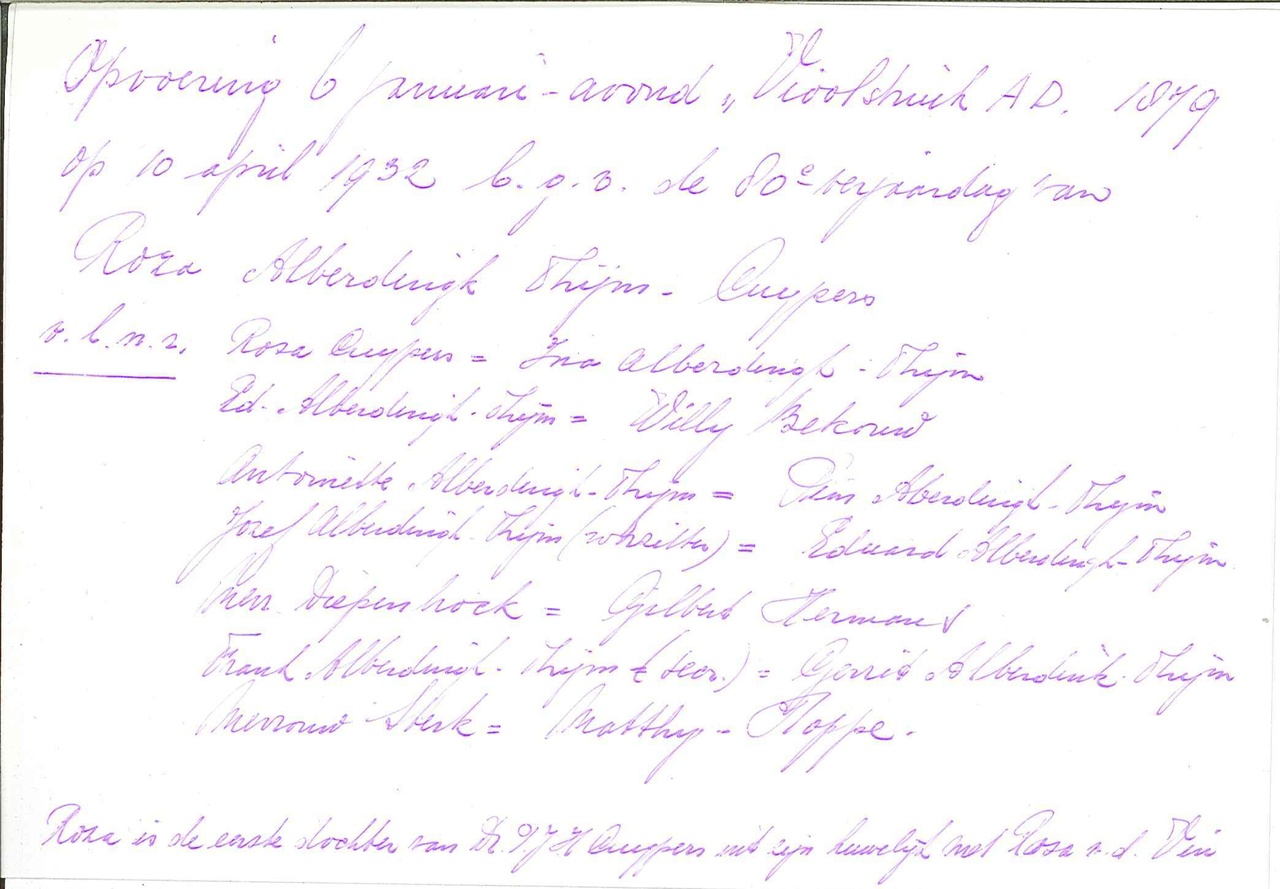 Opvoering 6 januari-avond „Vioolstruik A D. 1879
op 10 april 1932 t.g.v. de 80e verjaardag van
Roza Alberdingk Thijm - Cuypers
v.l.n.r. Rosa Cuypers = Ina Alberdingh - Thijm
Ed. Alberdingh - Thijm = Willy Bekouw
Antoinette Alberdingh - Thijm = Alberdingh - Thijm
Jozef Alberdingh - Thijm (voorzitter) = Eduard Alberdingh - Thijm
Mevr. Diepenhock = Gijlbert Hermans
Frank Alberdingh - Thijm (secr.) = Gerrit Alberdink - Thijm
Mevrouw Sterk = Matthy - Hoppe.
Roza is de eerste dochter van Dr. P.J.H Cuypers uit zijn huwelijk met Rosa v.d. Vin